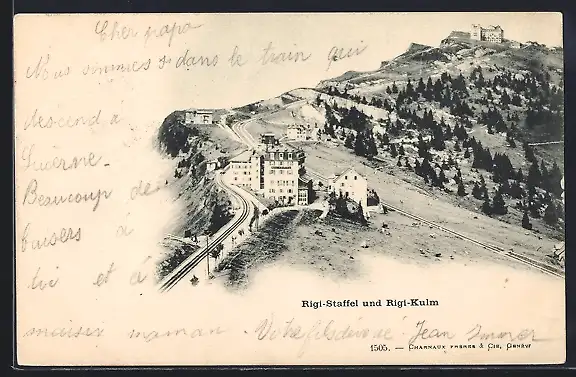 Cher papa
Nous sommes dans le train qui
descend à
Lucerne.
Beaucoup de
baisers à
toi et à
maman
Rigi-Staffel und Rigi-Kulm
Votre fils dévoué Jean
1505. – CHARNAUX FRÈRES & Cie, GENÈVE